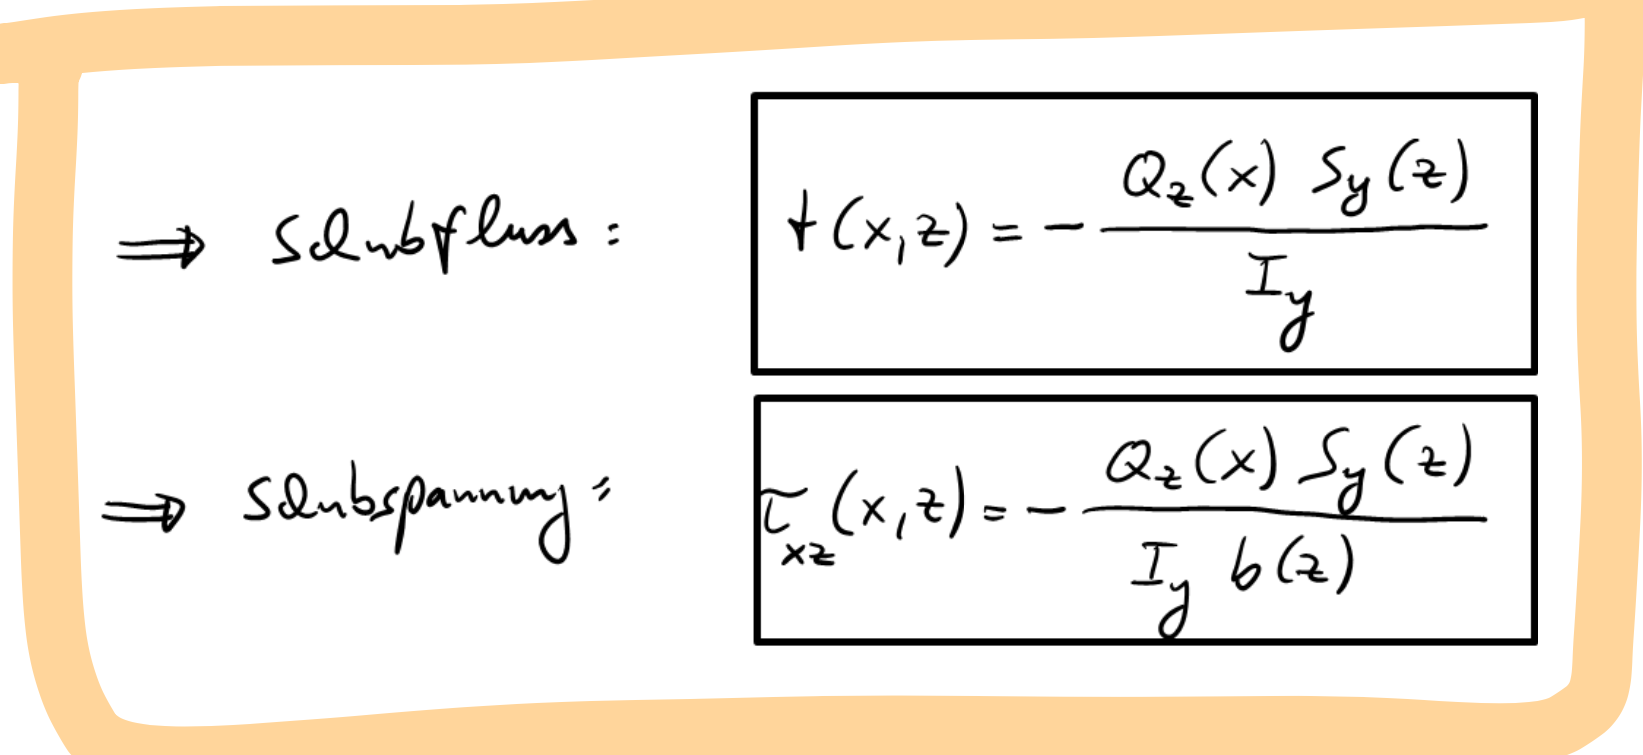 ⟹ Schubfluss: t(x,z) = - Q_z(x) S_y(z) / I_y
⟹ Schubspannung: τ_xz(x,z) = - Q_z(x) S_y(z) / I_y b(z)